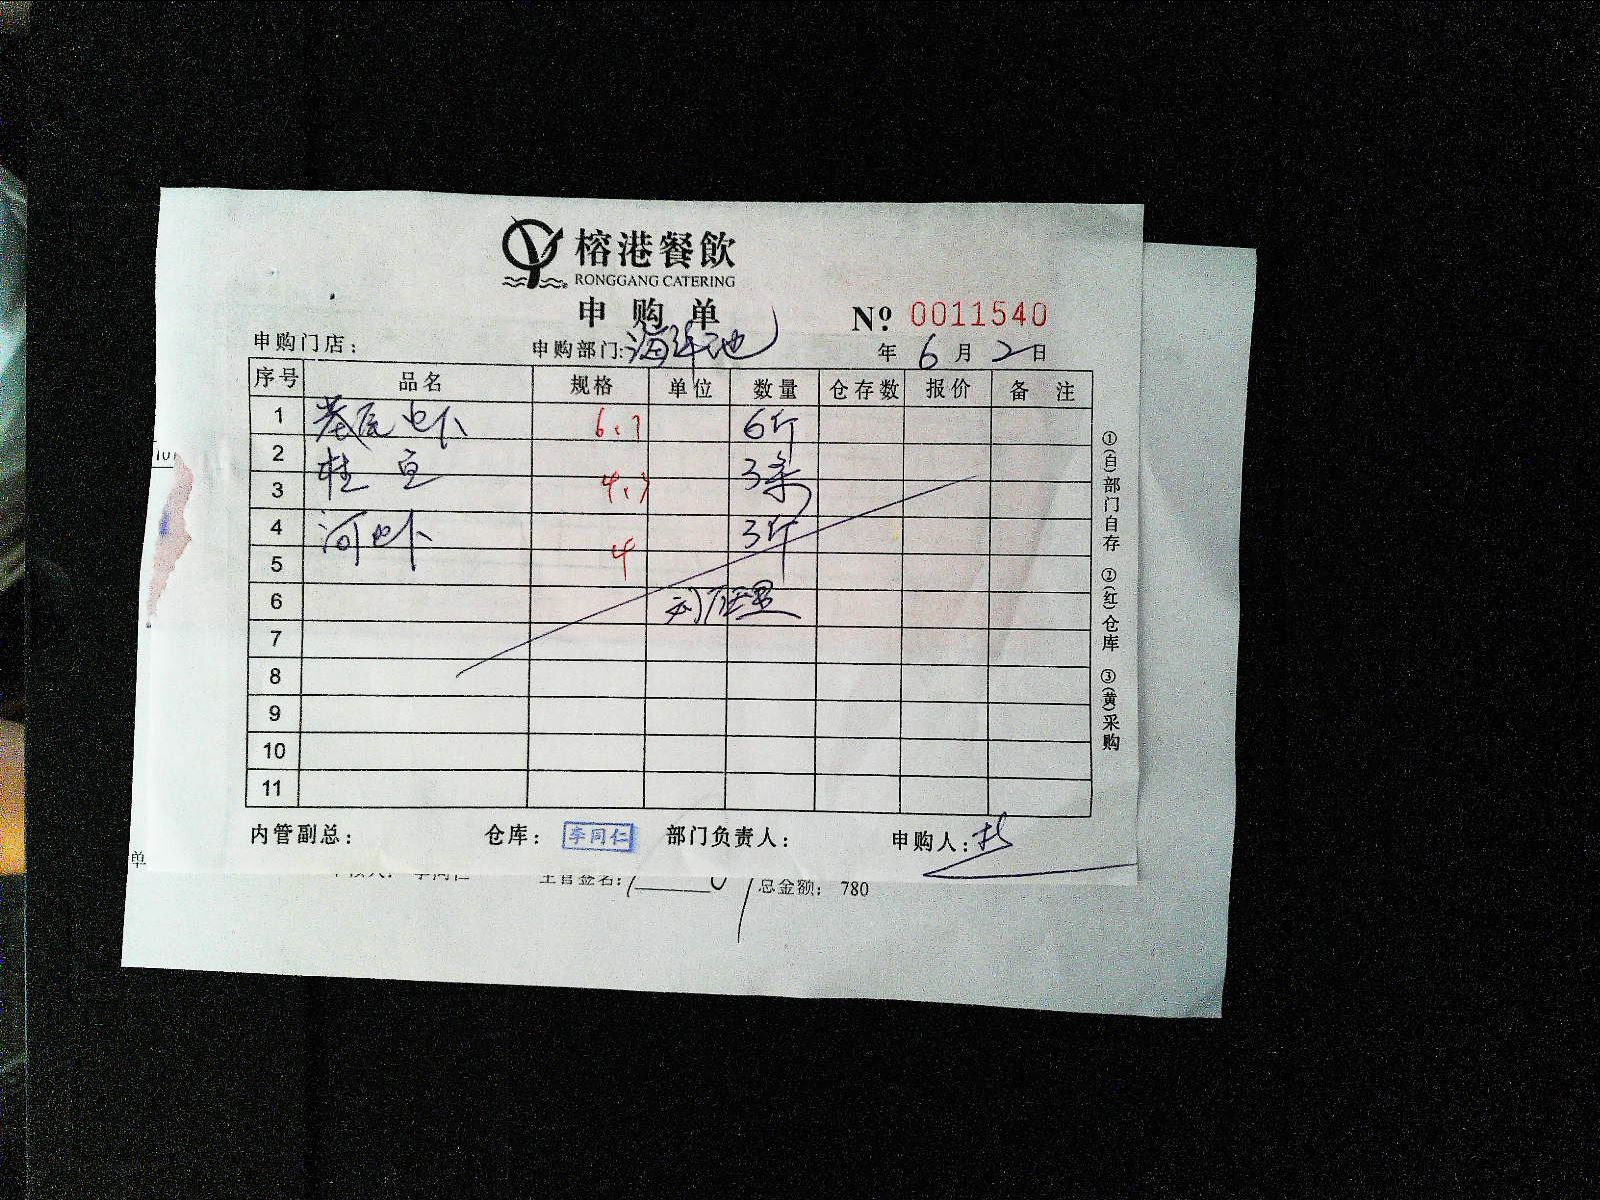 榕港餐飲
RONGGANG CATERING
申购单
№ 0011540
申购门店：
申购部门：海鲜池
年 6 月 2 日
序号 品名 规格 单位 数量 仓存数 报价 备注
1 基尾虾 6.1 6斤
2 桂鱼 3条
3 4.1
4 河虾 3斤
5 4
6
7
8
9
10
11
①(白)部门自存 ②(红)仓库 ③(黄)采购
内管副总： 仓库：李同仁 部门负责人： 申购人：
单
主管签名： 总金额： 780